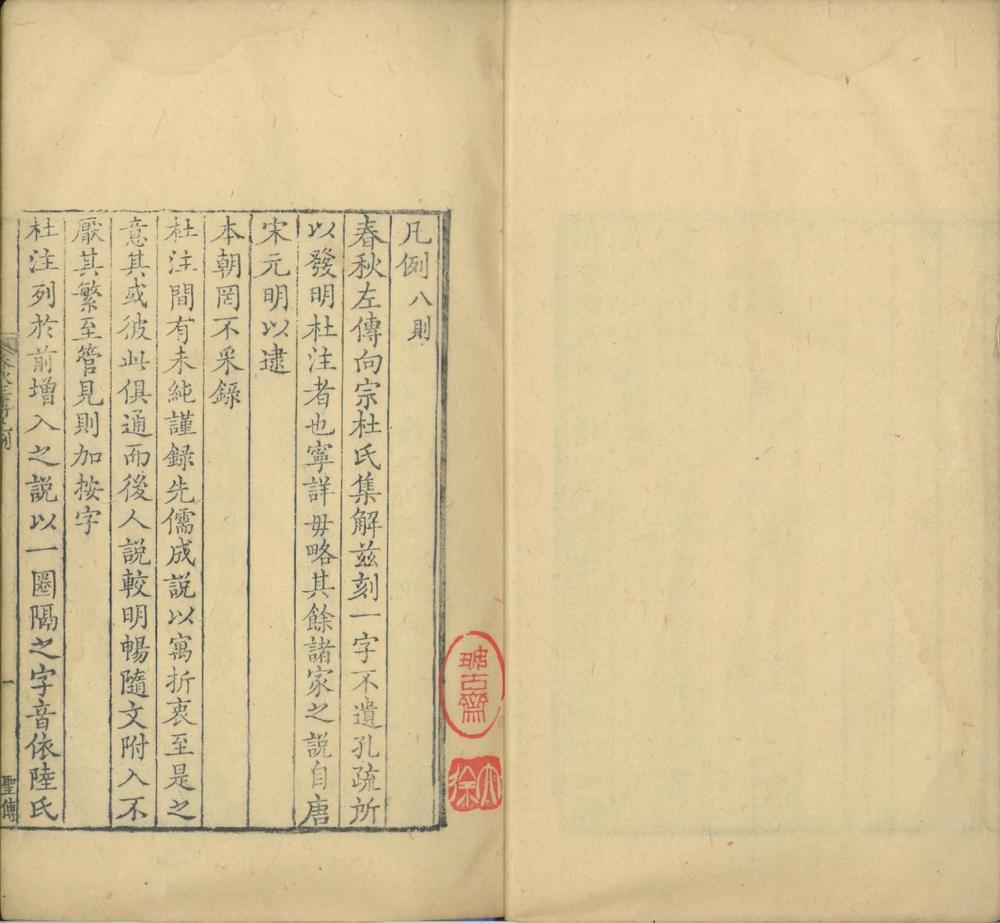 凡例八則
春秋左傳向宗杜氏集解茲刻一字不遺孔疏所
以發明杜注者也寧詳毋略其餘諸家之說自唐
宋元明以逮
本朝罔不采錄
杜注間有未純謹錄先儒成說以寓折衷至是之
意其或彼此俱通而後人說較明暢隨文附入不
厭其繁至管見則加按字
杜注列於前增入之說以一圈隔之字音依陸氏
一
聖傳